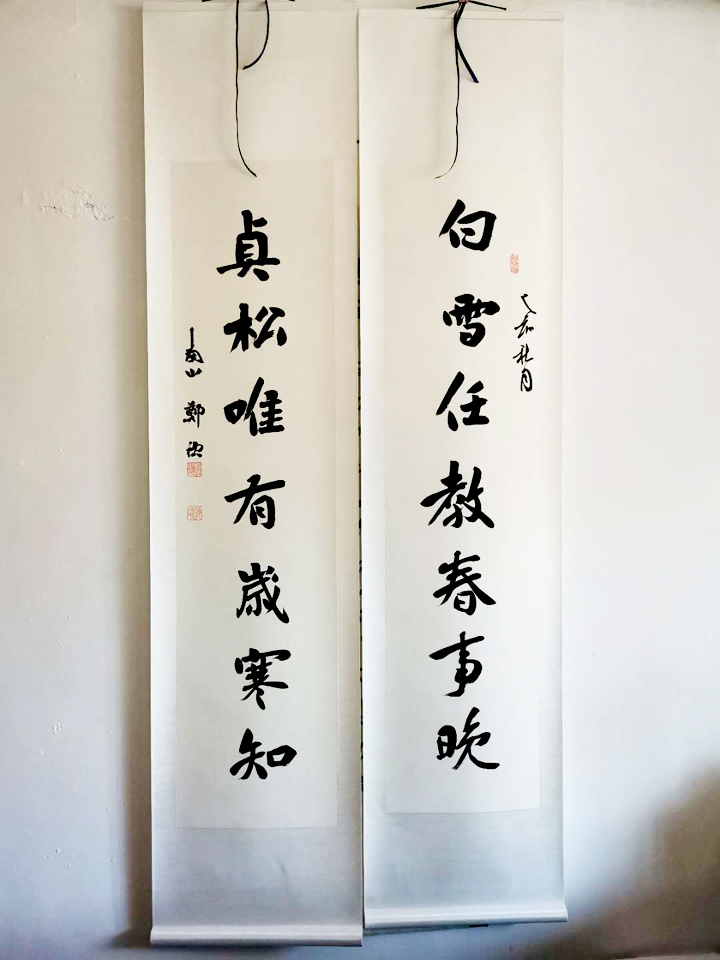 白雪任教春事晚
秋月
貞松唯有歲寒知
南山鄭